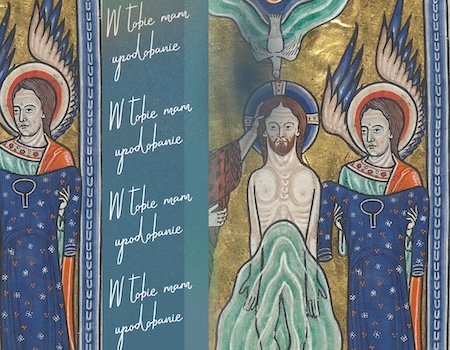 W tobie mam
upodobanie
W tobie mam
upodobanie
W tobie mam
upodobanie
W tobie mam
upodobanie